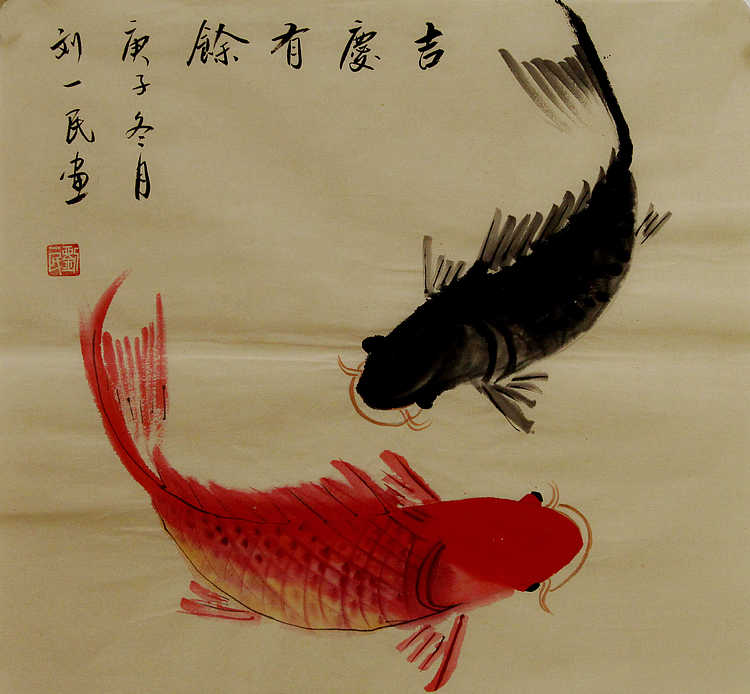 吉慶有餘
庚子冬月
刘一民画